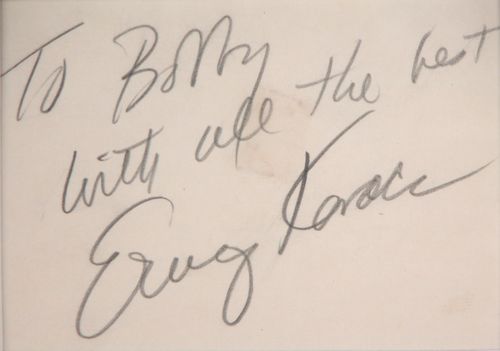 To Bobby
with all the best
Erny Kovacs